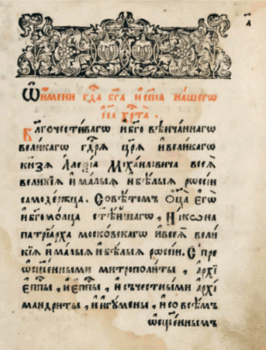 а҃
Ѿимени гдⷭ҇а бг҃а и҆сп҃са нашегѡ
і҆са хрⷭ҇та.
Блг҃очестиваго и҆бг҃овѣнчаннаго
великагѡ гдⷭ҇рѧ цр҃ѧ и҆великагѡ
кнѧ҃зѧ Алеѯі́а Михаиловича всеѧ̀
великїѧ и҆малыѧ и҆бѣлыѧ рѡссіи
самодержца. Совѣтомъ ѻ҆ц҃а Егѡ̀
и҆бг҃омолца ст҃ѣйшагѡ, Нікона
патрїарха московскагѡ и҆всеѧ вели
кїѧ и҆малыѧ и҆бѣлыѧ рѡссіи. С пре
ѡ҆сщ҃енными митрополиты, архї
еп҃пы, и҆еп҃пы, и҆съчестными архи
мандриты, и҆игꙋмены, и҆со всѣмъ
ѡ҆сщ҃еннымъ